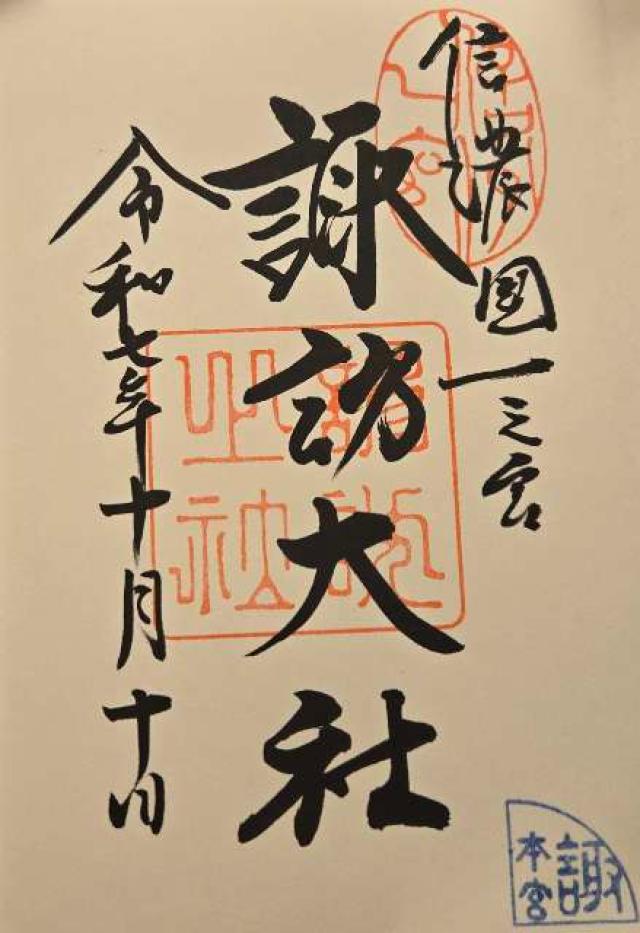 信濃國一之宮
諏訪大社
令和七年十月十日
諏
本宮